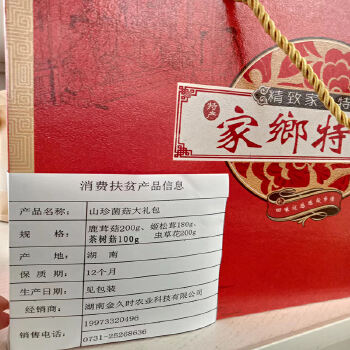 精致家
特
特产
家鄉特
回味悠悠感 故乡情
消费扶贫产品信息
产品名称： 山珍菌菇大礼包
规 格： 鹿茸菇200g、姬松茸180g、
茶树菇100g 虫草花200g
产 地： 湖 南
保 质 期： 12个月
生产日期： 见包装
经销商： 湖南金久时农业科技有限公司
销售电话： 19973320496
0731-25268636